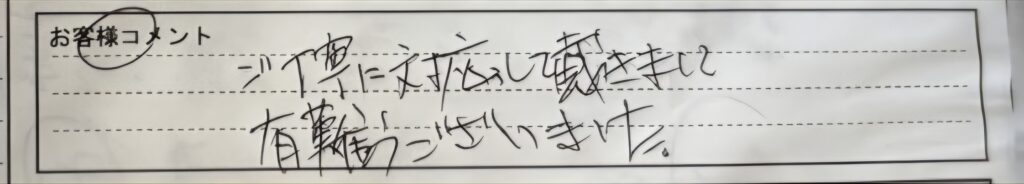 お客様コメント
丁寧に対応して戴きまして
有難うございました。